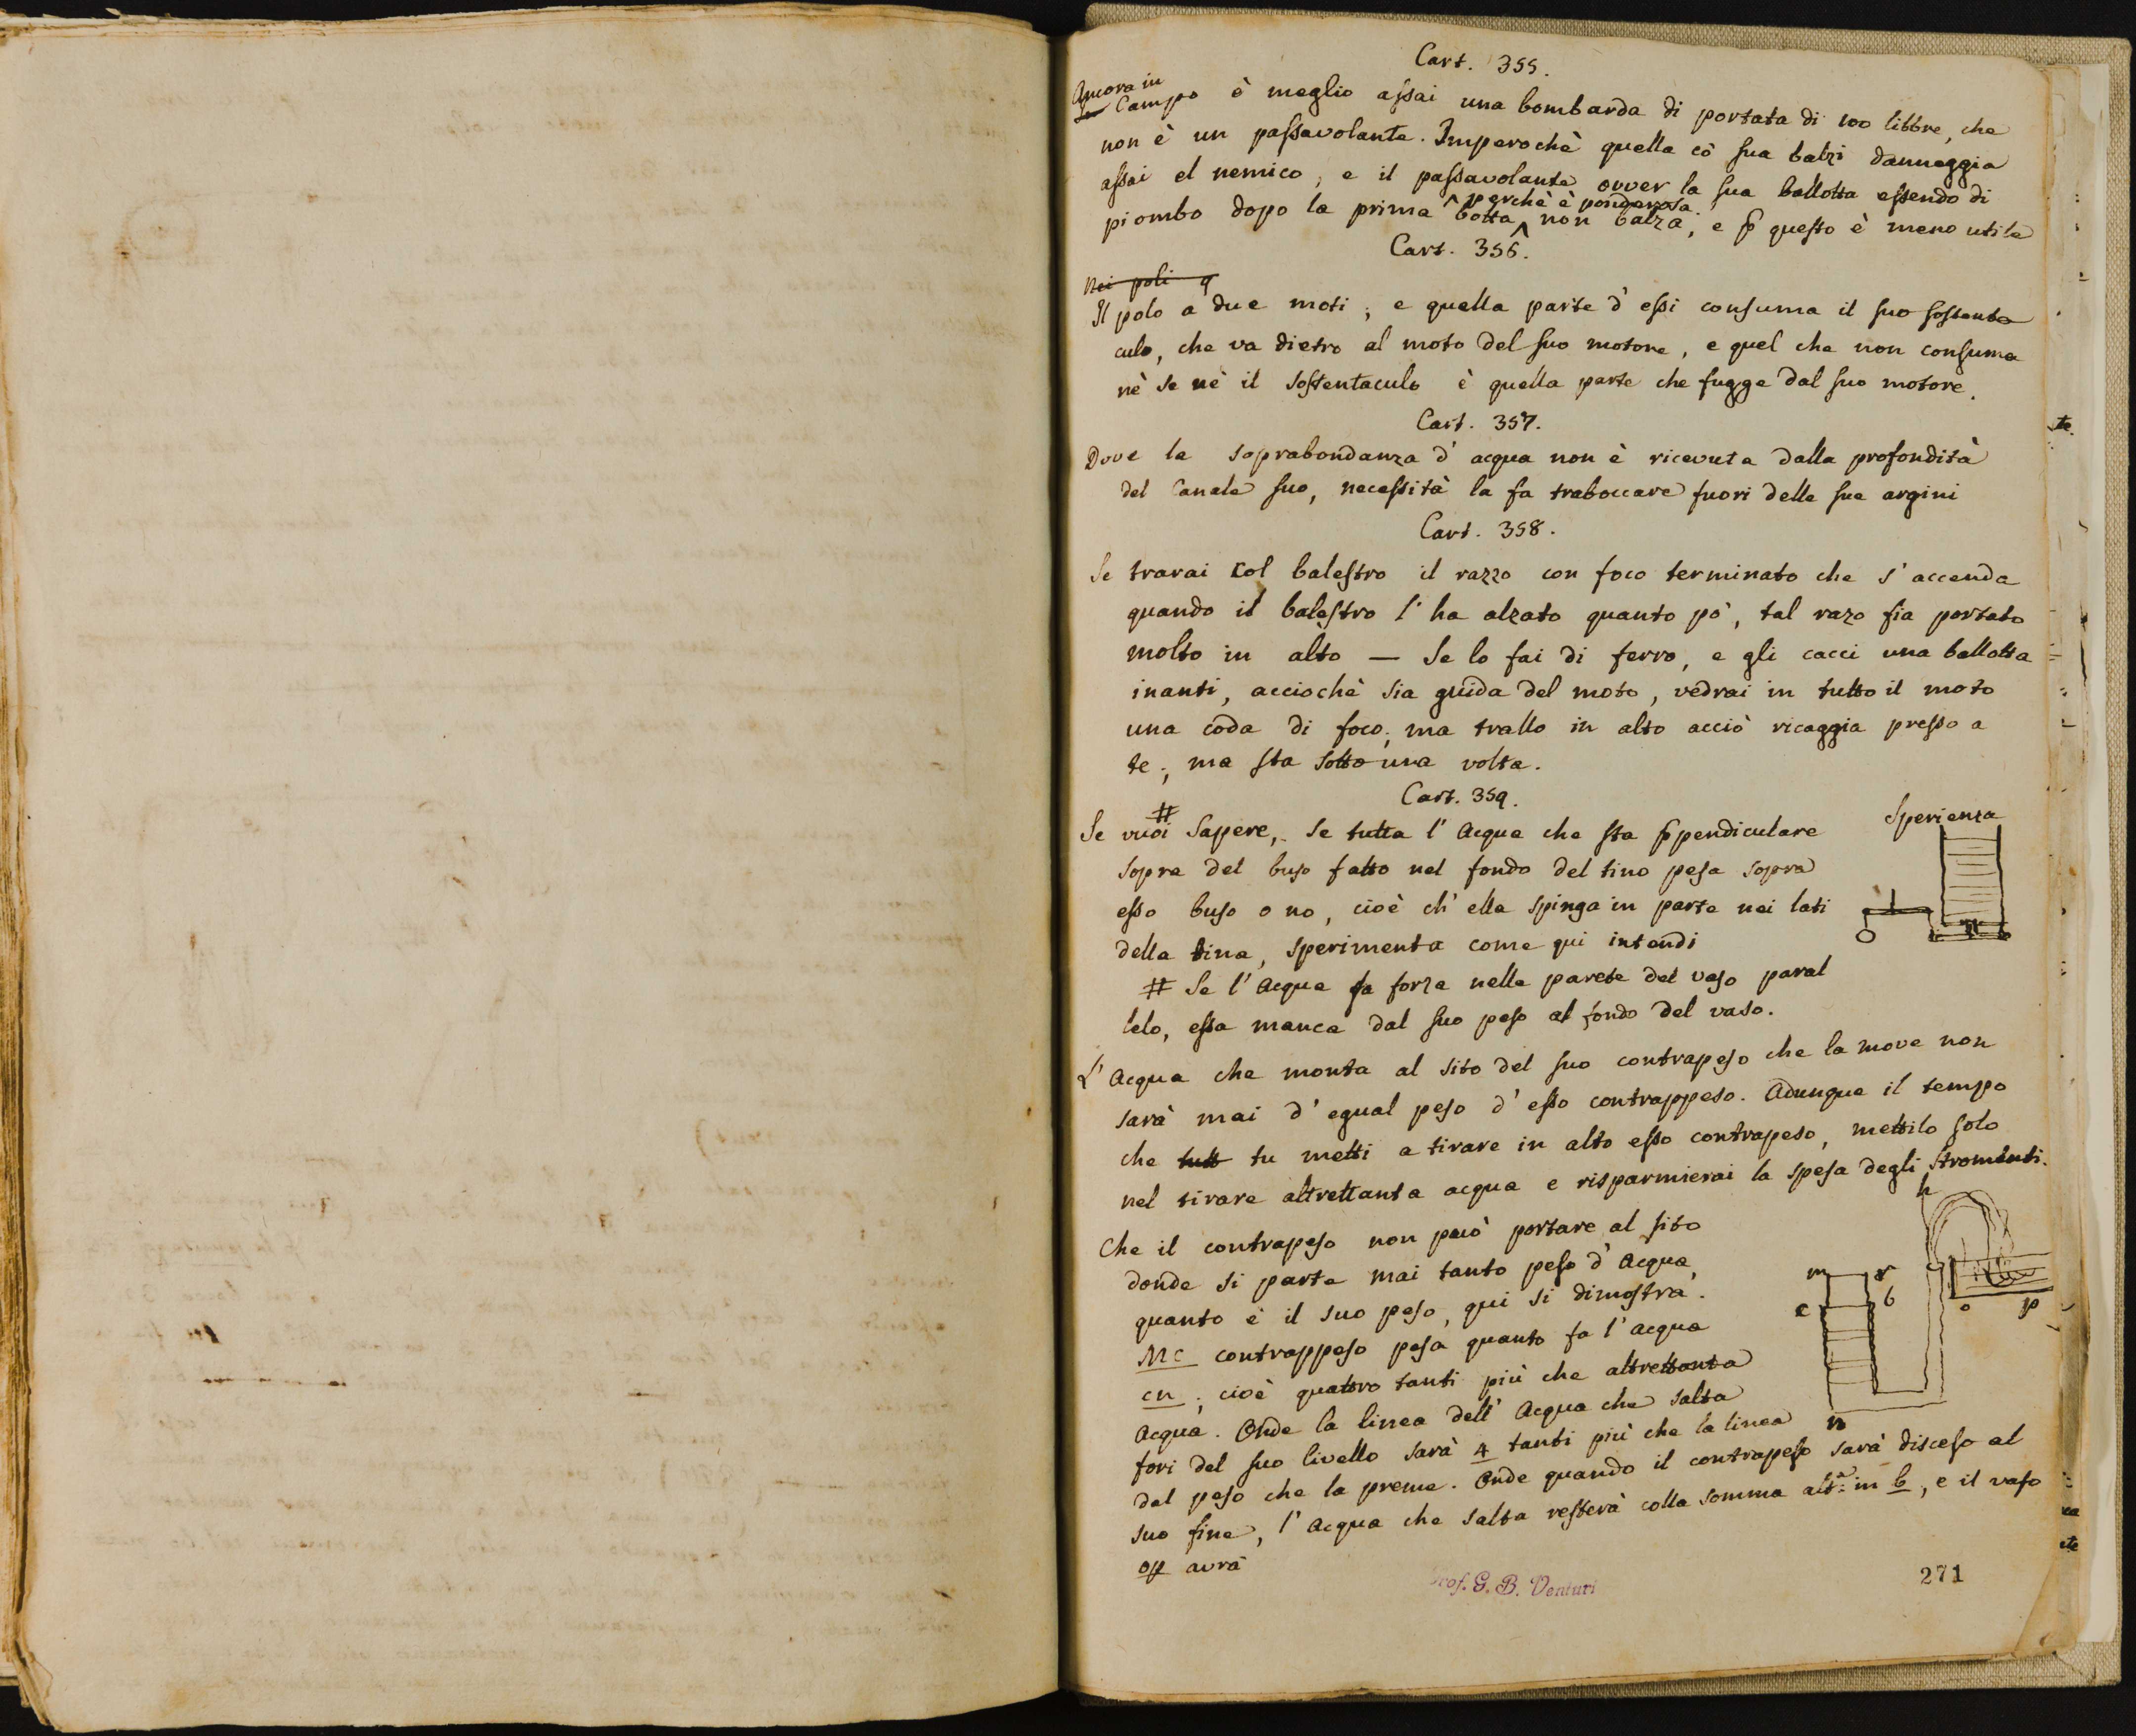 Cart. 355.
Ancora in
Campo è meglio assai una bombarda di portata di 100 libbre, che
non è un passavolante. Imperochè quella cò sua balzi danneggia
assai el nemico, e il passavolante ovver la sua ballotta essendo di
perchè è ponderosa
piombo dopo la prima botta non balza, e ꝑ questo è meno utile
Cart. 356.
Nei poli q
Il polo a due moti; e quella parte d'essi consuma il suo sostenta
culo, che va dietro al moto del suo motore, e quel che non consuma
nè se nè il sostentaculo è quella parte che fugge dal suo motore.
Cart. 357.
Dove la soprabondanza d'acqua non è ricevuta dalla profondità
del Canale suo, necessità la fa traboccare fuori delle sue argini
Cart. 358.
Se trarai col balestro il razzo con foco terminato che s'accenda
quando il balestro l'ha alzato quanto pò, tal razo fia portato
molto in alto — Se lo fai di ferro, e gli cacci una ballotta
inanti, acciochè sia guida del moto, vedrai in tutto il moto
una coda di foco; ma trallo in alto acciò ricaggia presso a
te; ma sta sotto una volta.
Cart. 359.
#
Se vuoi sapere, se tutta l'Acqua che sta ꝑpendiculare
Sperienza
sopra del buso fatto nel fondo del tino pesa sopra
esso buso o no, cioè ch'ella spinga in parte nei lati
n
della tina, sperimenta come qui intendi
# Se l'Acqua fa forza nelle parete del vaso paral
lelo, essa manca dal suo peso al fondo del vaso.
L'Acqua che monta al sito del suo contrapeso che la move non
sarà mai d'egual peso d'esso contrappeso. Adunque il tempo
che tutt tu metti a tirare in alto esso contrapeso, mettilo solo
nel tirare altrettanta acqua e risparmierai la spesa degli stromenti.
h
Che il contrapeso non può portare al sito
donde si parte mai tanto peso d'Acqua,
m r
quanto è il suo peso, qui si dimostra.
c b o p
Mc contrappeso pesa quanto fa l'acqua
cn; cioè quattro tanti più che altrettanta
Acqua. Onde la linea dell'Acqua che salta
n
fori del suo livello sarà 4 tanti più che la linea
del peso che la preme. Onde quando il contrapeso sarà disceso al
suo fine, l'Acqua che salta resterà colla somma alt.ª in b, e il vaso
op avrà
Prof. G. B. Venturi
271